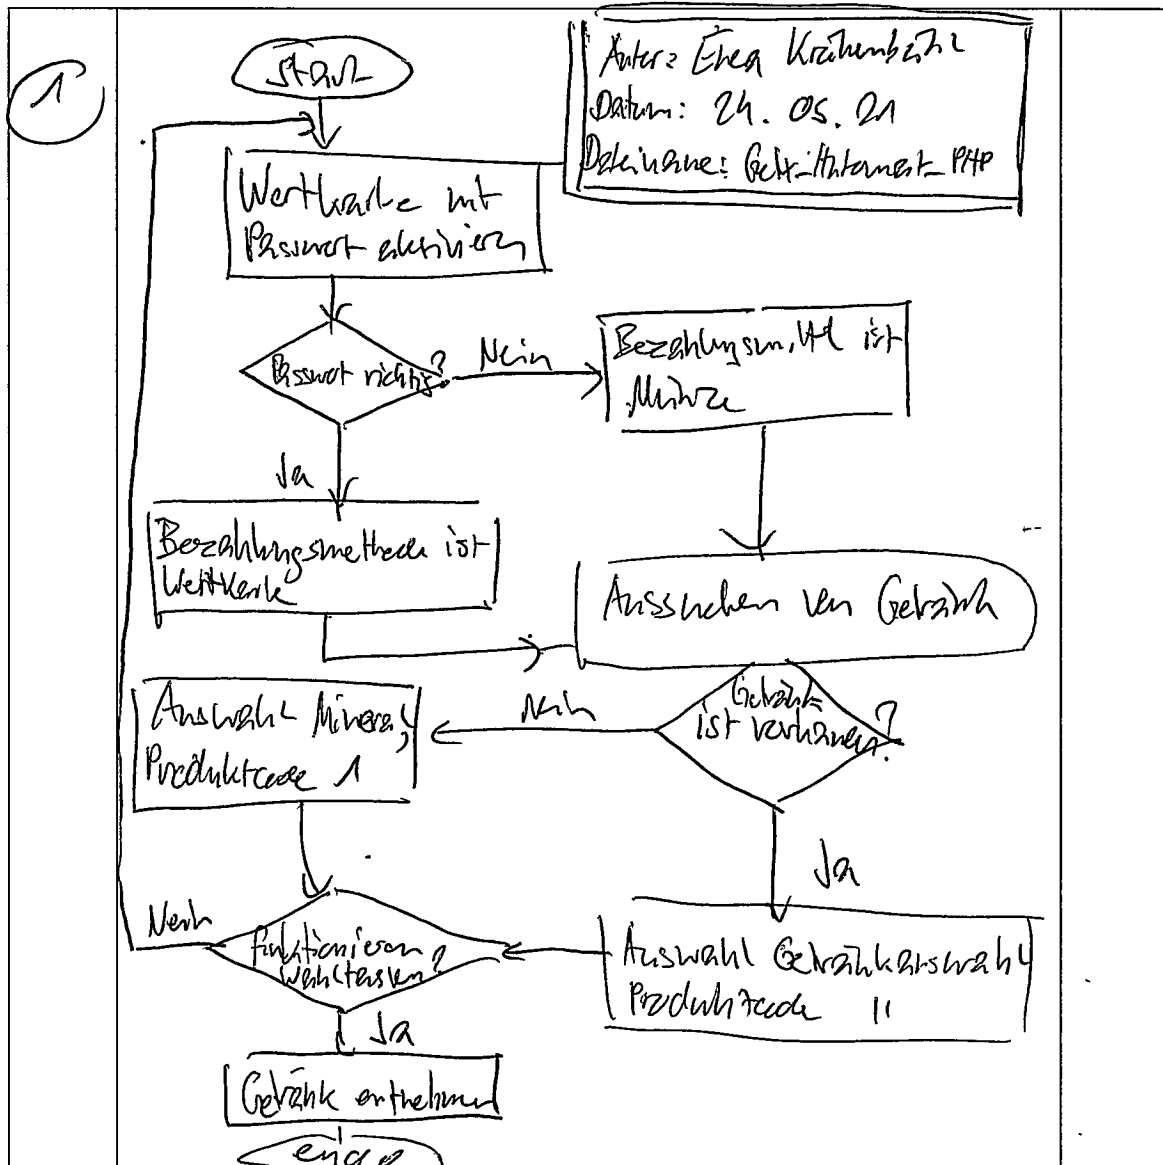 1
Start
Autor: Enea Krähenbühl
Datum: 24.05.21
Dateiname:
Wertkarte mit
Passwort aktivieren
Passwort richtig?
Nein
Bezahlungsmittel ist
Münze
Ja
Bezahlungsmethode ist
Wertkarte
Aussuchen von Getränk
Getränk
ist vorhanen?
Nein
Auswahl Mineral,
Produktcode 1
Ja
Auswahl Getränkauswahl
Produktcode 11
funktionieren
Wahltasten?
Nein
Ja
Getränk entnehmen
ende